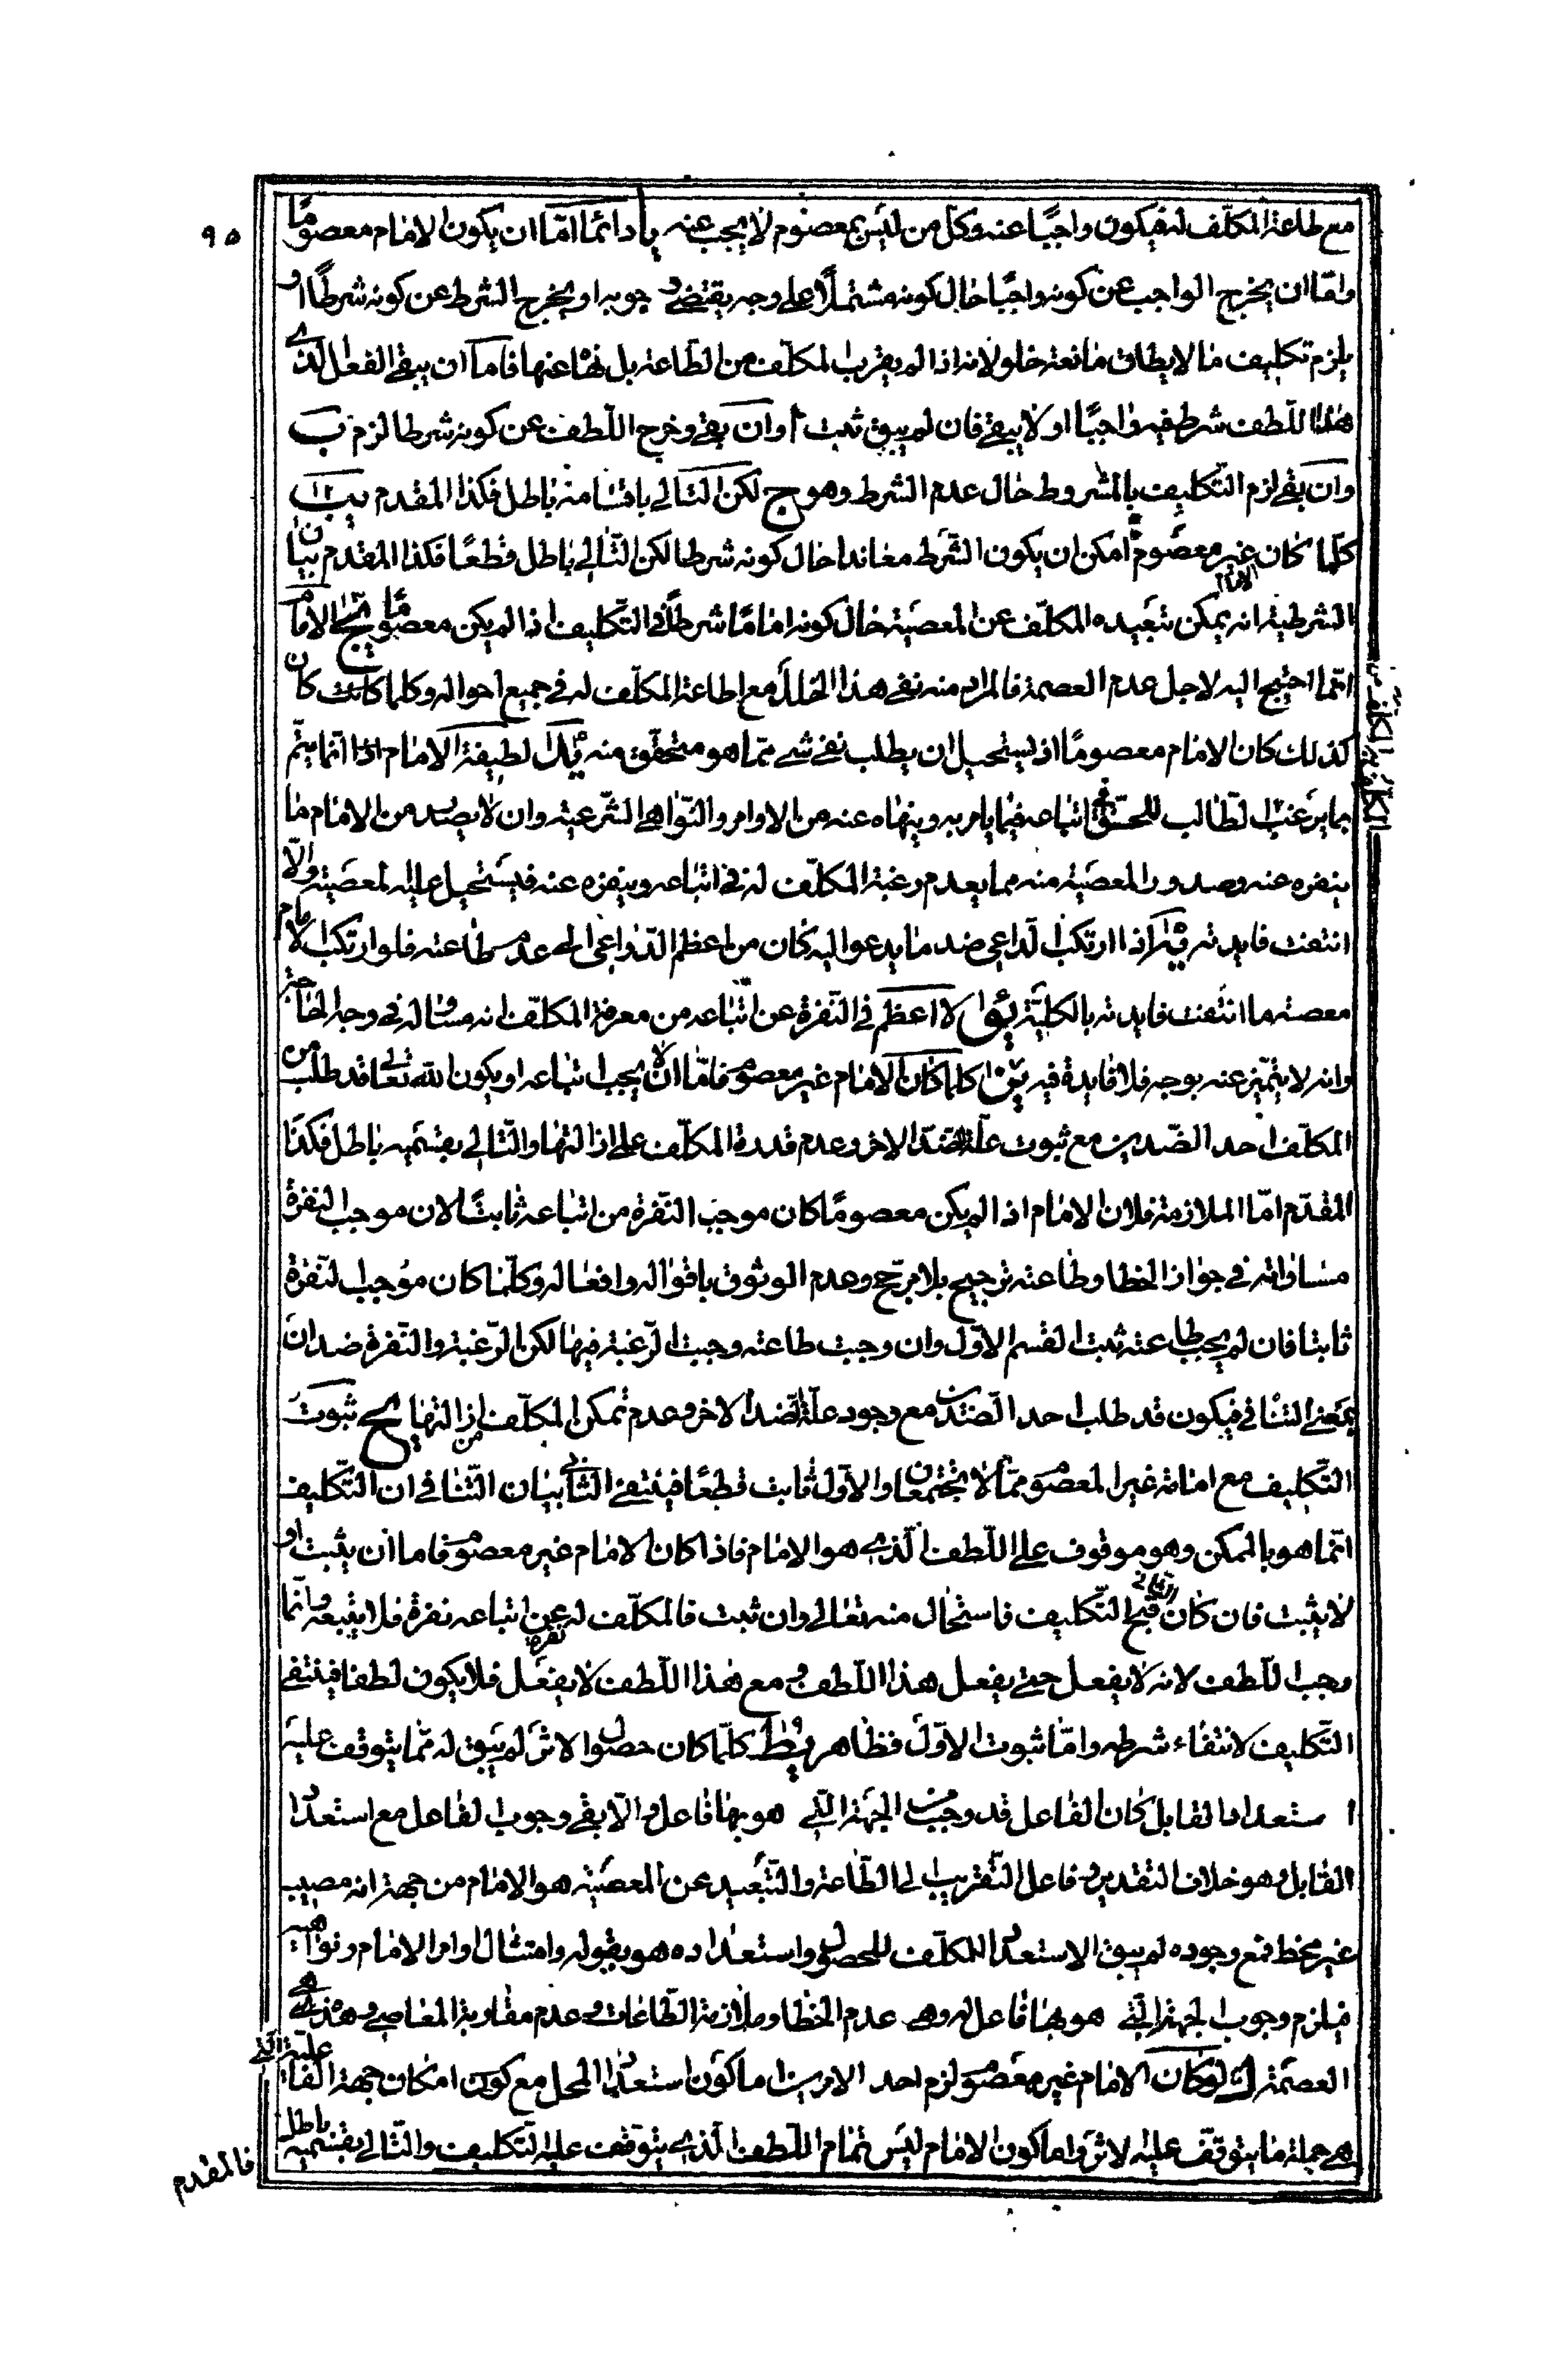 ٩٥
مع طاعة المكلّف له فيكون واجبًا عنه وكل من ليس بمعصوم لا يجب عنه يا دائمًا امّا ان يكون الامام معصومًا
وامّا ان يخرج الواجب عن كونه واجبًا حال كونه مشتملًا على وجه يقتضى وجوبه او يخرج الشرط عن كونه شرطًا او
يلزم تكليف ما لا يطاق مانعة خلو لانه اذا لم يقرب المكلّف من الطّاعة بل نهاه عنها فاما ان يبقى الفعل الذى
هذا اللّطف شرط فيه واجبًا او لا يبقى فان لم يبق ثبت آ وان بقى وخرج اللّطف عن كونه شرطا لزم ب
وان بقى لزم التّكليف بالمشروط حال عدم الشرط وهو ج لكن التالى باقسامه باطل فكذا المقدم يب
كلّما كان غير معصوم امكن ان يكون الشّرط معاندا حال كونه شرطا لكن التّالى باطل قطعًا فكذا المقدم بيان
الشرطية انه يمكن تبعيده المكلّف عن المعصية حال كونه امامًا شرطًا فى التّكليف اذا لم يكن معصومًا يج الامام
انّما احتيج اليه لاجل عدم العصمة فالمراد منه نفى هذا الخلل مع اطاعة المكلّف له فى جميع احواله وكلما كان
كذلك كان الامام معصومًا اذ يستحيل ان يطلب نفى شى ممّا هو متحقّق منه يد لطيفة الامام انّما يتم
بما يرغب الطّالب للحق فى اتباعه فيما يامر به وينهاه عنه من الاوامر والنّواهى الشّرعيّة وان لا يصدر من الامام ما
ينفره عنه وصدور المعصية منه مما يعدم رغبة المكلّف له فى اتباعه وينفره عنه فيستحيل عليه المعصية والّا
انتفت فايدته يه اذا ارتكب الدّاعى ضد ما يدعو اليه كان من اعظم الدّواعى الى عدم طاعته فلو ارتكب الامام
معصية ما انتفت فايدته بالكليّة يو لا اعظم فى النّفرة عن اتّباعه من معرفة المكلّف انه مساو له فى وجه الحاجة
وانه لا يتميّز عنه بوجه فلا فايدة فيه يز كلما كان الامام غير معصوم فامّا ان لا يجب اتباعه او يكون الله تعالى قد طلب من
المكلّف احد الضّدين مع ثبوت علّة الضّد الاخر وعدم قدرة المكلّف على ازالتها والتّالى بقسميه باطل فكذا
المقدّم امّا الملازمة فلان الامام اذا لم يكن معصومًا كان موجب النّفرة من اتباعه ثابتًا لان موجب النفرة
مساواته فى جواز الخطا وطاعته ترجيح بلا مرجّح وعدم الوثوق باقواله وافعاله وكلّما كان موجب النّفرة
ثابتا فان لم يجب طاعته ثبت القسم الاوّل وان وجبت طاعته وجبت الرّغبة فيها لكن الرّغبة والنّفرة ضدان
بمعنى التنافى فيكون قد طلب احد الضدين مع وجود علّة الضد الاخر وعدم تمكن المكلّف من ازالتها يح ثبوت
التّكليف مع امامة غير المعصوم ممّا لا يجتمعان والاوّل ثابت قطعًا فينتفى الثّانى بيان التّنافى ان التّكليف
انّما هو بالممكن وهو موقوف على اللّطف الّذى هو الامام فاذا كان الامام غير معصوم فاما ان يثبت او
لا يثبت فان كان الثانى قبح التّكليف فاستحال منه تعالى وان ثبت فالمكلّف له عن اتباعه نفرة فلا يتبعه وانّما
وجب اللّطف لانه لا يفعل حتى يفعل هذا اللّطف ومع هذا اللّطف لا يفعل فلا يكون لطفا فينتفى
التّكليف لانتفاء شرطه وامّا ثبوت الاوّل فظاهر يط كلّما كان حصول الاثر لم يبق له ممّا يتوقف عليه
استعداد القابل كان الفاعل قد وجبت الجهة التى هو بها فاعل والّا بقى وجوب الفاعل مع استعداد
القابل وهو خلاف التقدير وفاعل التّقريب الى الطّاعة والتّبعيد عن المعصية هو الامام من جهة انه مصيب
غير مخط فمع وجوده لم يبق الا استعداد المكلّف للحصول واستعداده هو بقبوله وامتثال اوامر الامام ونواهيه
فيلزم وجوب الجهة التى هو بها فاعل وهى عدم الخطا وملازمة الطّاعات وعدم مقاربة المعاصى وهذه هى
العصمة ك لو كان الامام غير معصوم لزم احد الامرين اما كون استعداد المحل مع كون امكان جهة الفاعلية التى
هى جملة ما يتوقّف عليه الاثر واما كون الامام ليس تمام اللّطف الّذى يتوقف عليه التّكليف والتّالى بقسميه باطل
فالمقدم